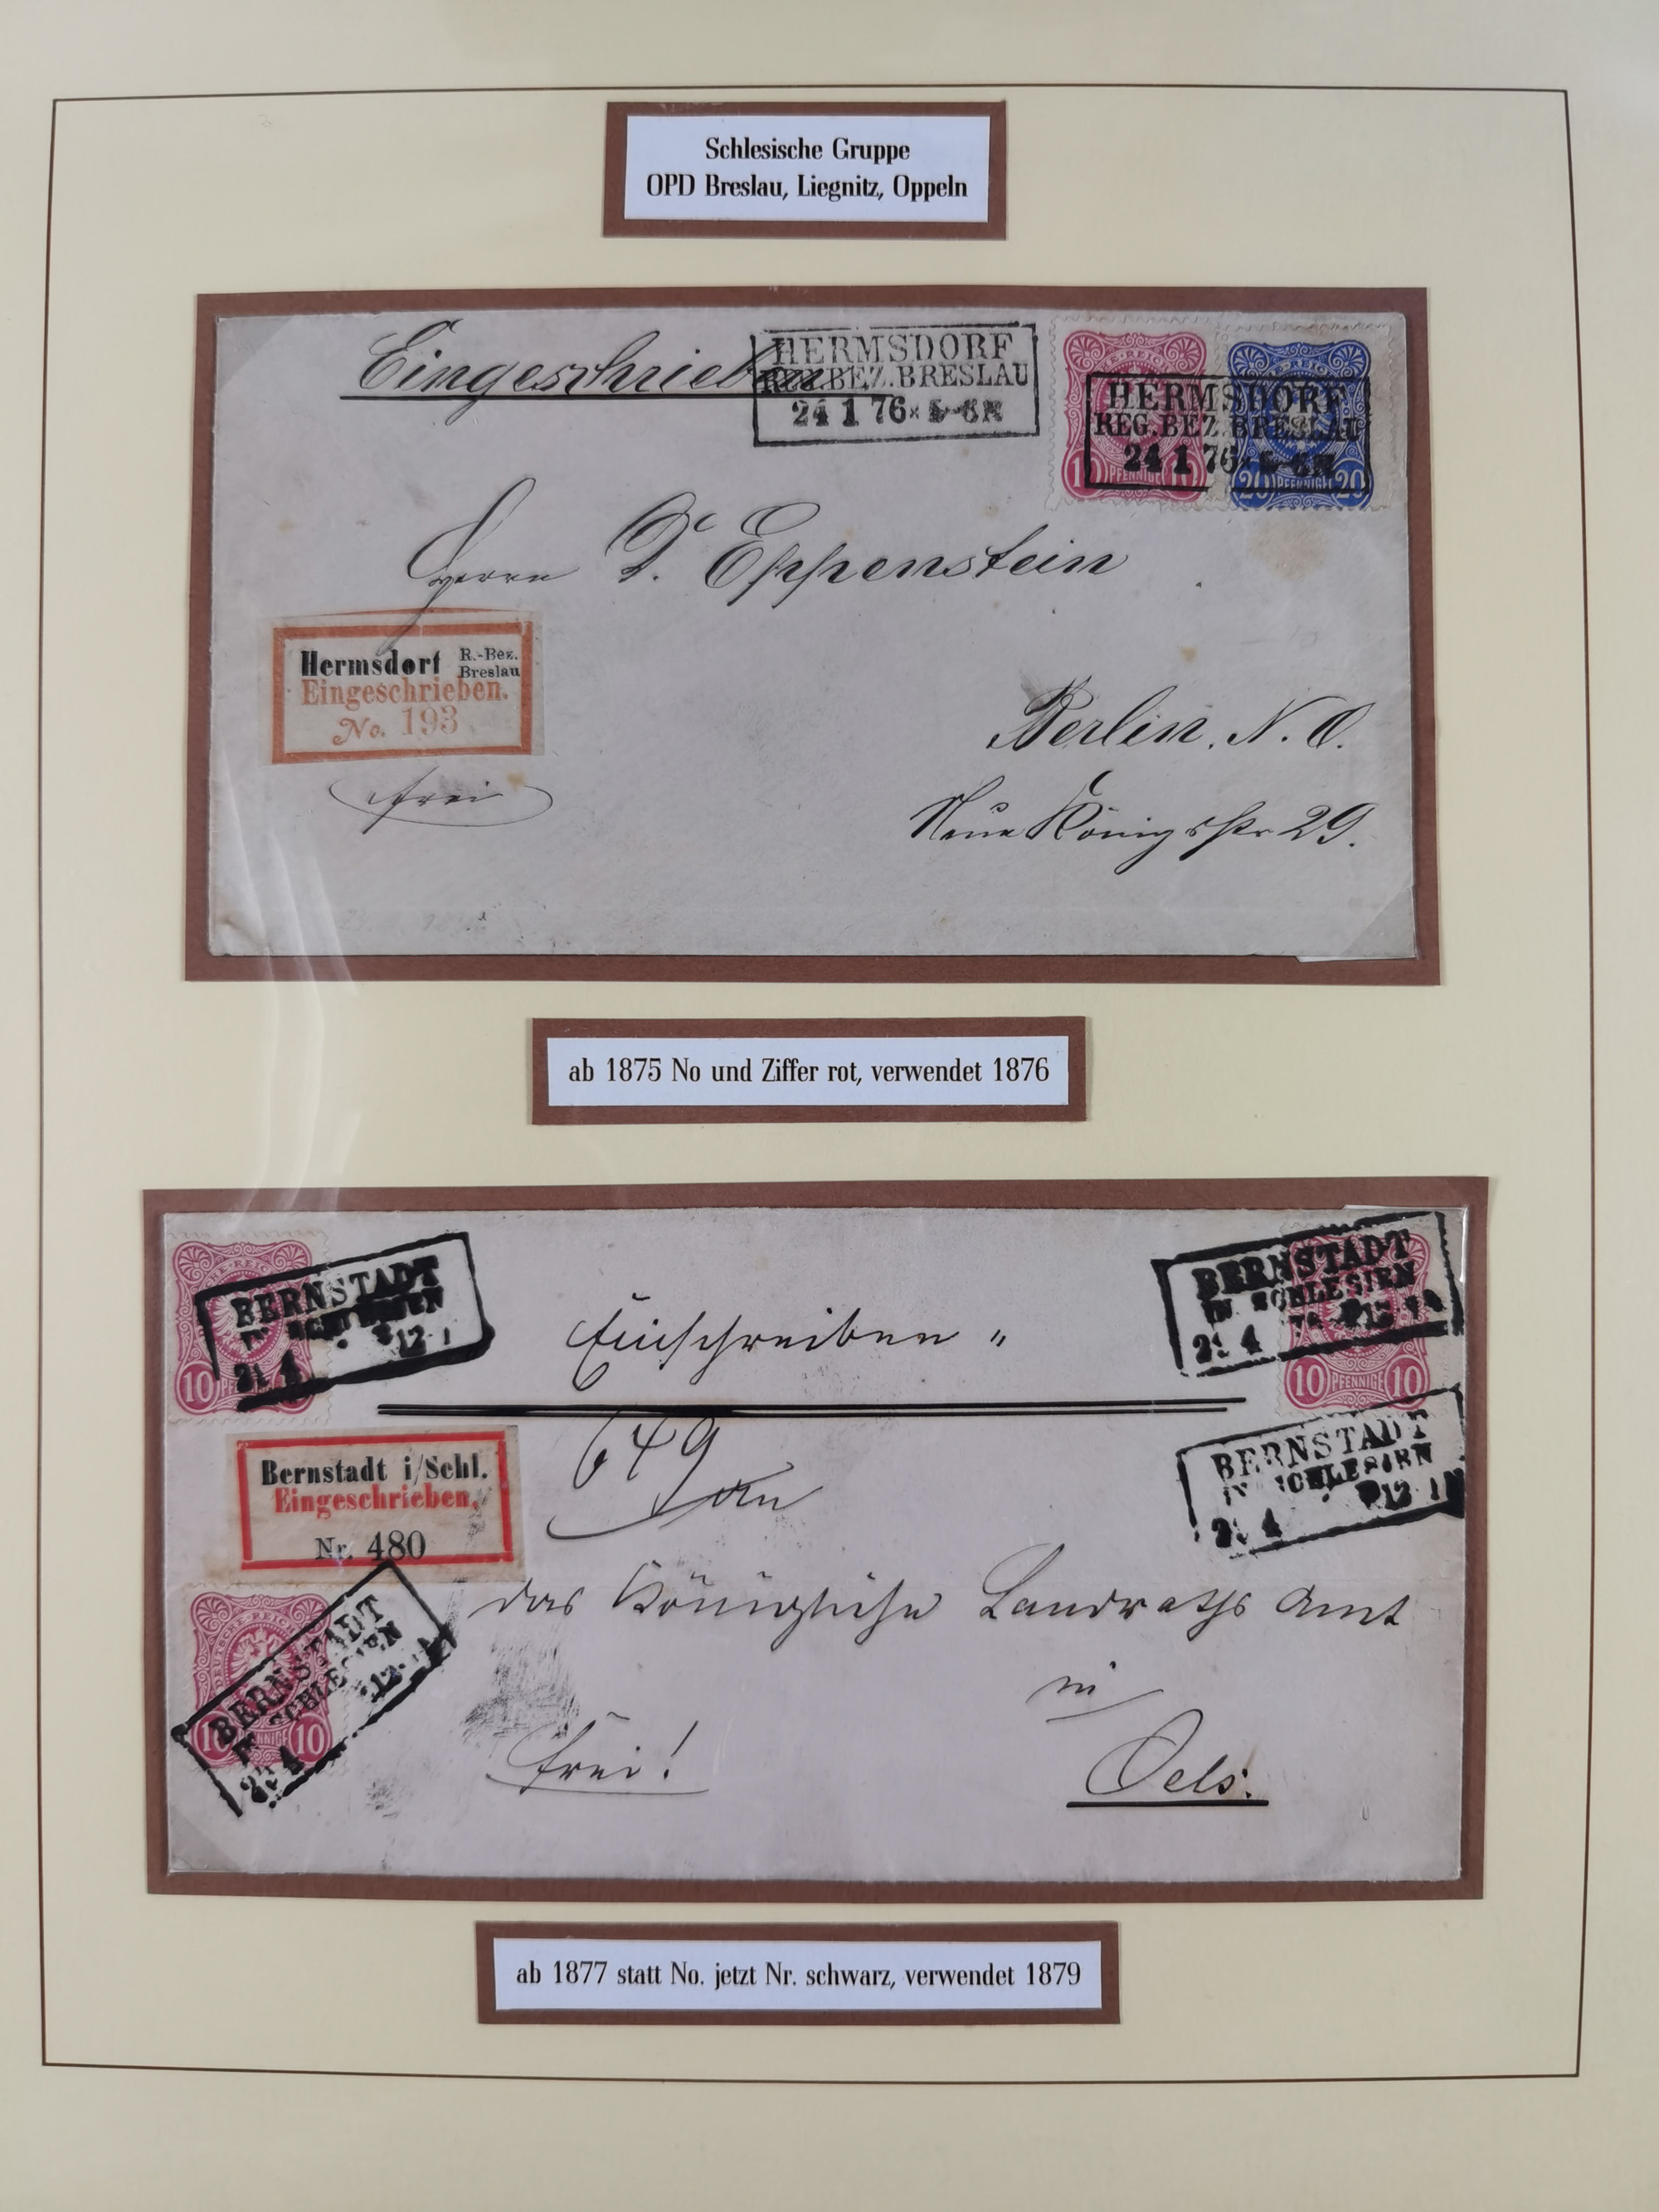 Schlesische Gruppe
OPD Breslau, Liegnitz, Oppeln
Eingeschrieben
HERMSDORF
REG.BEZ.BRESLAU
24 1 76 5-6N
DEUTSCHE REICHS
10 PFENNIGE 10
20 PFENNIGE 20
HERMSDORF
REG.BEZ.BRESLAU
24 1 76 5-6N
Herrn D. Eppenstein
Hermsdorf R.-Bez. Breslau
Eingeschrieben.
No. 193
frei
Berlin. N. O.
Neue Königsstr 29.
ab 1875 No und Ziffer rot, verwendet 1876
10
BERNSTADT
IN SCHLESIEN
4 12-1
Einschreiben "
BERNSTADT
IN SCHLESIEN
4 12-1
10 PFENNIGE 10
BERNSTADT
IN SCHLESIEN
4 12-1
649
An
Bernstadt i/Schl.
Eingeschrieben.
Nr. 480
das Königliche Landraths Amt
in
Oels.
DEUTSCHE REICHS
10 PFENNIGE 10
BERNSTADT
IN SCHLESIEN
4 12-1
frei!
ab 1877 statt No. jetzt Nr. schwarz, verwendet 1879